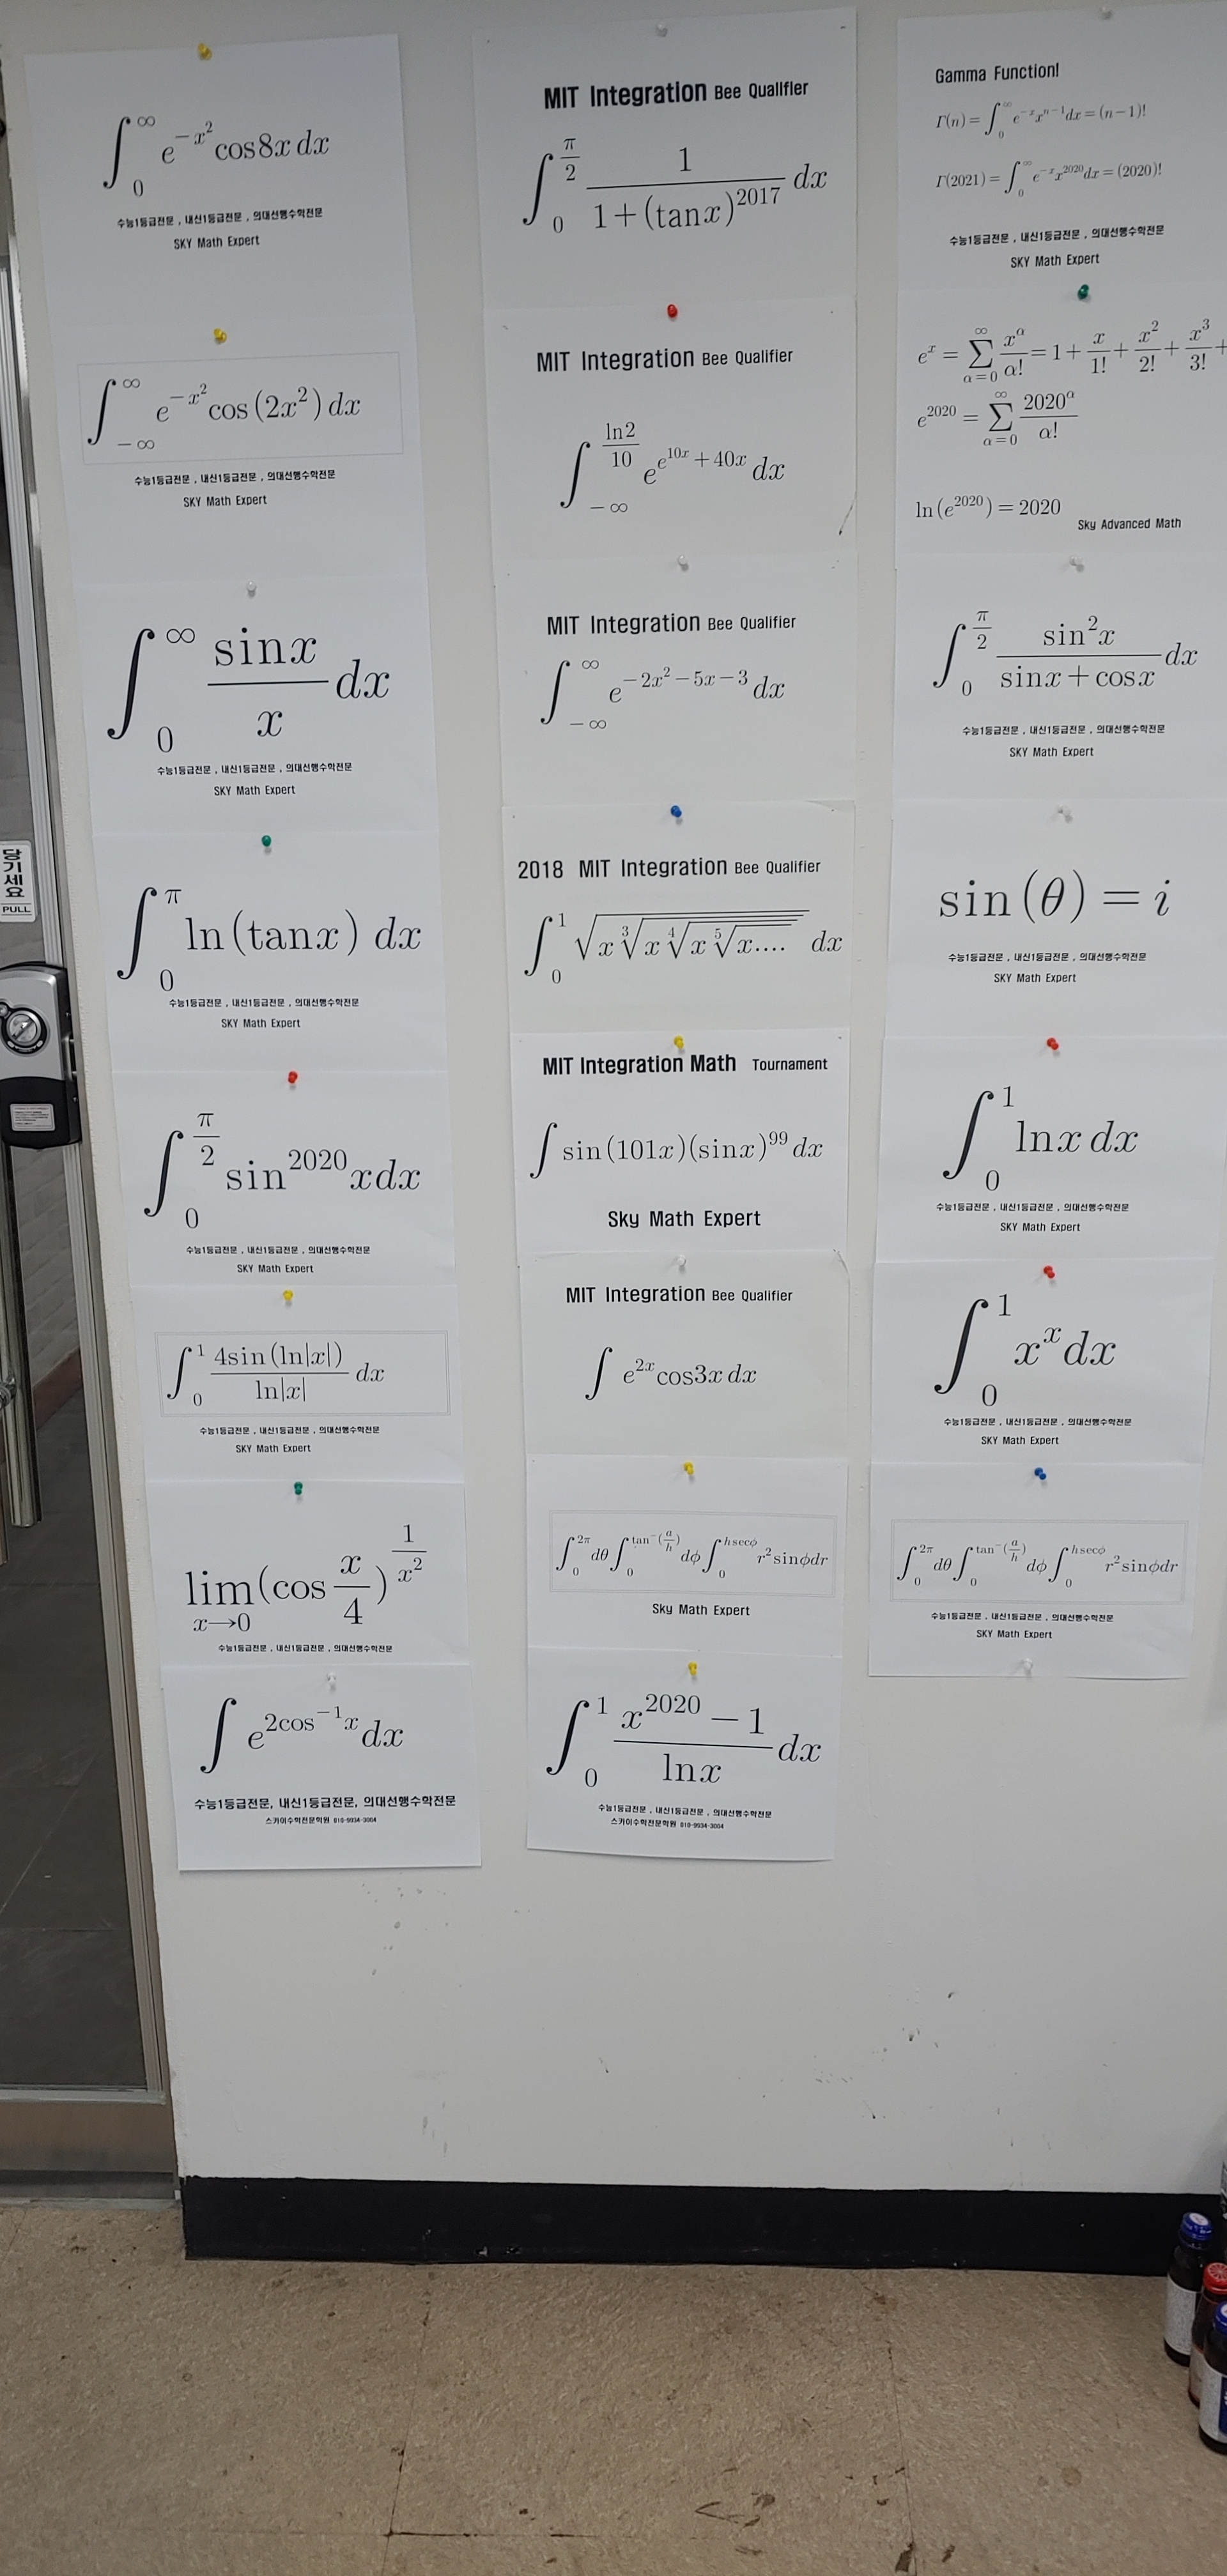 ∫₀^∞ e^{-x²} cos8x dx
수능1등급전문 , 내신1등급전문 , 의대선행수학전문
SKY Math Expert
∫_{-∞}^{∞} e^{-x²} cos(2x²) dx
수능1등급전문 , 내신1등급전문 , 의대선행수학전문
SKY Math Expert
∫₀^∞ \frac{sinx}{x} dx
수능1등급전문 , 내신1등급전문 , 의대선행수학전문
SKY Math Expert
∫₀^π ln(tanx) dx
수능1등급전문 , 내신1등급전문 , 의대선행수학전문
SKY Math Expert
∫₀^{\frac{π}{2}} sin^{2020}xdx
수능1등급전문 , 내신1등급전문 , 의대선행수학전문
SKY Math Expert
∫₀^1 \frac{4sin(ln|x|)}{ln|x|} dx
수능1등급전문 , 내신1등급전문 , 의대선행수학전문
SKY Math Expert
lim_{x→0} (cos \frac{x}{4})^{\frac{1}{x²}}
수능1등급전문 , 내신1등급전문 , 의대선행수학전문
∫ e^{2cos^{-1}x} dx
수능1등급전문, 내신1등급전문, 의대선행수학전문
스카이수학전문학원 010-9934-3004
MIT Integration Bee Qualifier
∫₀^{\frac{π}{2}} \frac{1}{1+(tanx)^{2017}} dx
MIT Integration Bee Qualifier
∫_{-∞}^{\frac{ln2}{10}} e^{e^{10x}+40x} dx
MIT Integration Bee Qualifier
∫_{-∞}^{∞} e^{-2x²-5x-3} dx
2018 MIT Integration Bee Qualifier
∫₀^1 √{x ∛{x ∜{x ⁵√{x....}}}} dx
MIT Integration Math Tournament
∫ sin(101x)(sinx)^{99} dx
Sky Math Expert
MIT Integration Bee Qualifier
∫ e^{2x} cos3x dx
∫₀^{2π} dθ ∫₀^{tan^{-}(\frac{a}{h})} dϕ ∫₀^{hsecϕ} r²sinϕdr
Sky Math Expert
∫₀^1 \frac{x^{2020}-1}{lnx} dx
수능1등급전문 , 내신1등급전문 , 의대선행수학전문
스카이수학전문학원 010-9934-3004
Gamma Function!
Γ(n) = ∫₀^∞ e^{-x}x^{n-1}dx = (n-1)!
Γ(2021) = ∫₀^∞ e^{-x}x^{2020}dx = (2020)!
수능1등급전문 , 내신1등급전문 , 의대선행수학전문
SKY Math Expert
e^x = ∑_{α=0}^{∞} \frac{x^α}{α!} = 1 + \frac{x}{1!} + \frac{x²}{2!} + \frac{x³}{3!} +
e^{2020} = ∑_{α=0}^{∞} \frac{2020^α}{α!}
ln(e^{2020}) = 2020
Sky Advanced Math
∫₀^{\frac{π}{2}} \frac{sin²x}{sinx+cosx} dx
수능1등급전문 , 내신1등급전문 , 의대선행수학전문
SKY Math Expert
sin(θ) = i
수능1등급전문 , 내신1등급전문 , 의대선행수학전문
SKY Math Expert
∫₀^1 lnx dx
수능1등급전문 , 내신1등급전문 , 의대선행수학전문
SKY Math Expert
∫₀^1 x^x dx
수능1등급전문 , 내신1등급전문 , 의대선행수학전문
SKY Math Expert
∫₀^{2π} dθ ∫₀^{tan^{-}(\frac{a}{h})} dϕ ∫₀^{hsecϕ} r²sinϕdr
수능1등급전문 , 내신1등급전문 , 의대선행수학전문
SKY Math Expert
당기세요
PULL